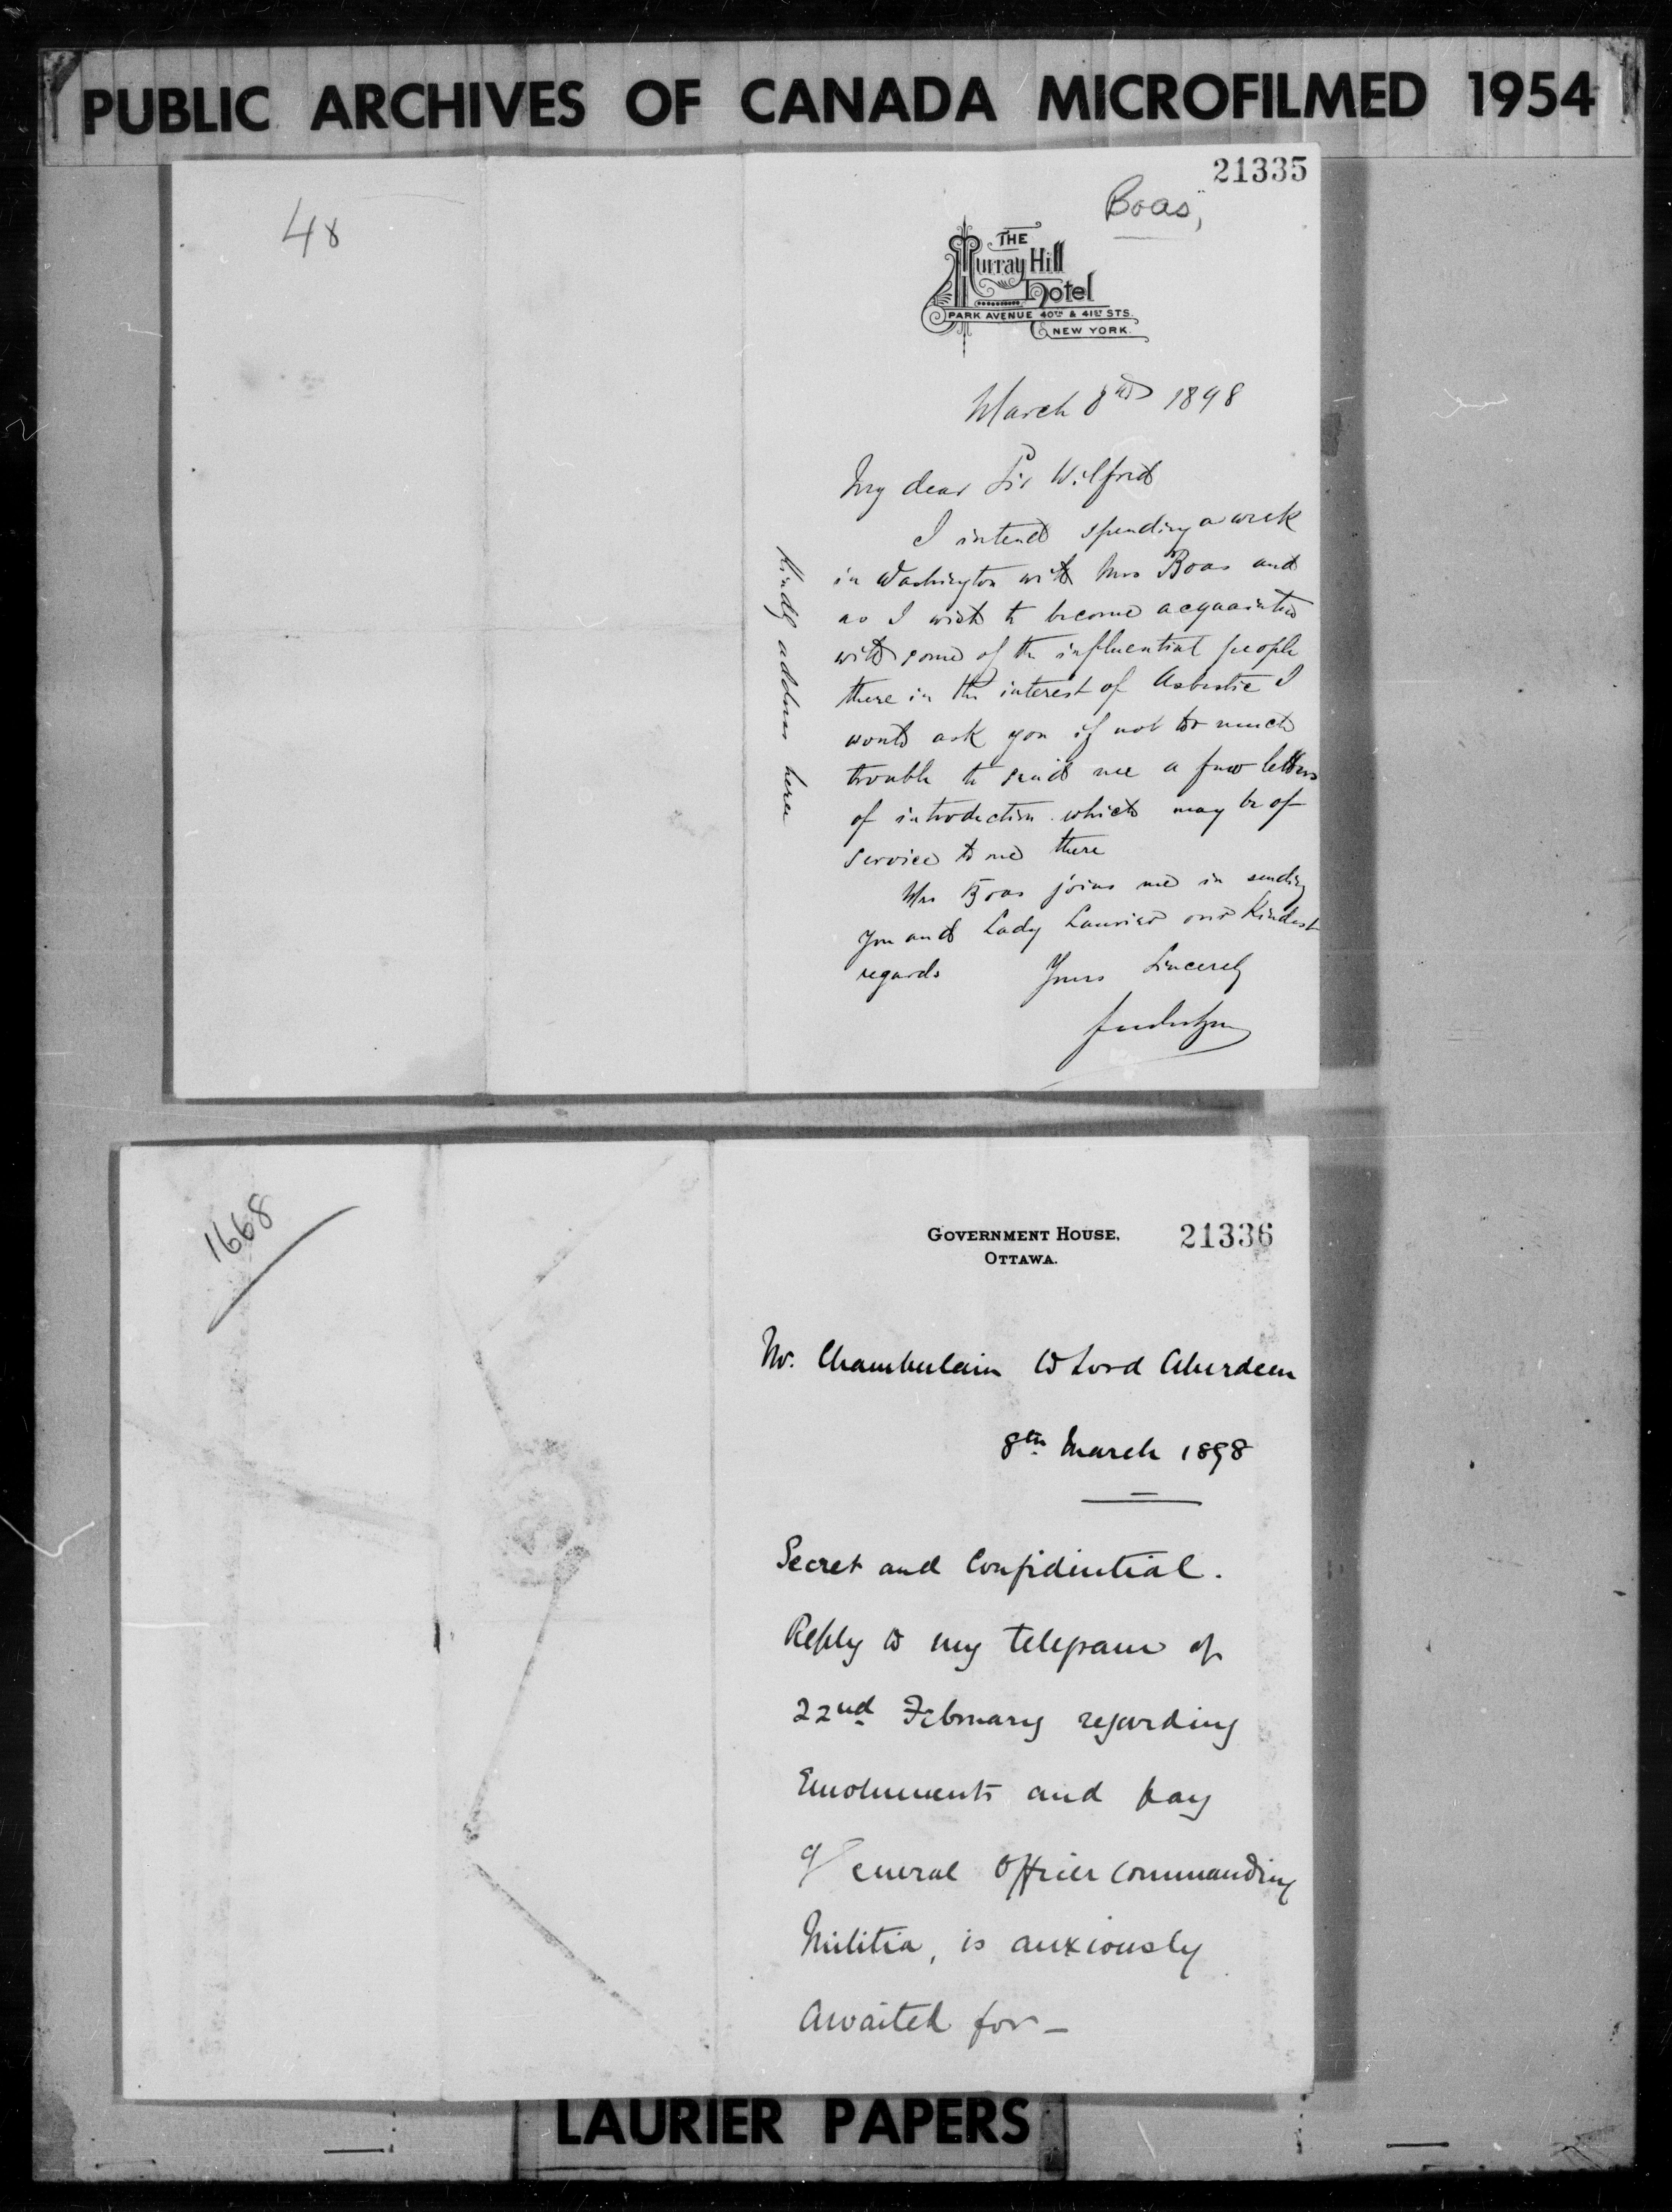 PUBLIC ARCHIVES OF CANADA MICROFILMED 1954
21335
48
Boas,
THE
Murray Hill
Hotel
PARK AVENUE 40TH & 41ST STS.
NEW YORK.
March 8th 1898
My dear Sir Wilfrid
I intend spending a week
in Washington with Mrs Boas and
as I wish to become acquainted
with some of the influential people
there in the interest of Asbestic I
would ask you if not too much
trouble to send me a few letters
of introduction which may be of
service to me there
Mrs Boas joins me in sending
you and Lady Laurier our Kindest
regards Yours Sincerely
Kindly address here
1668
GOVERNMENT HOUSE,
OTTAWA.
21336
Mr. Chamberlain to Lord Aberdeen
8th March 1898
Secret and Confidential.
Reply to my telegram of
22nd February regarding
Emoluments and pay
General Officer Commanding
Militia, is anxiously
Awaited for—
LAURIER PAPERS